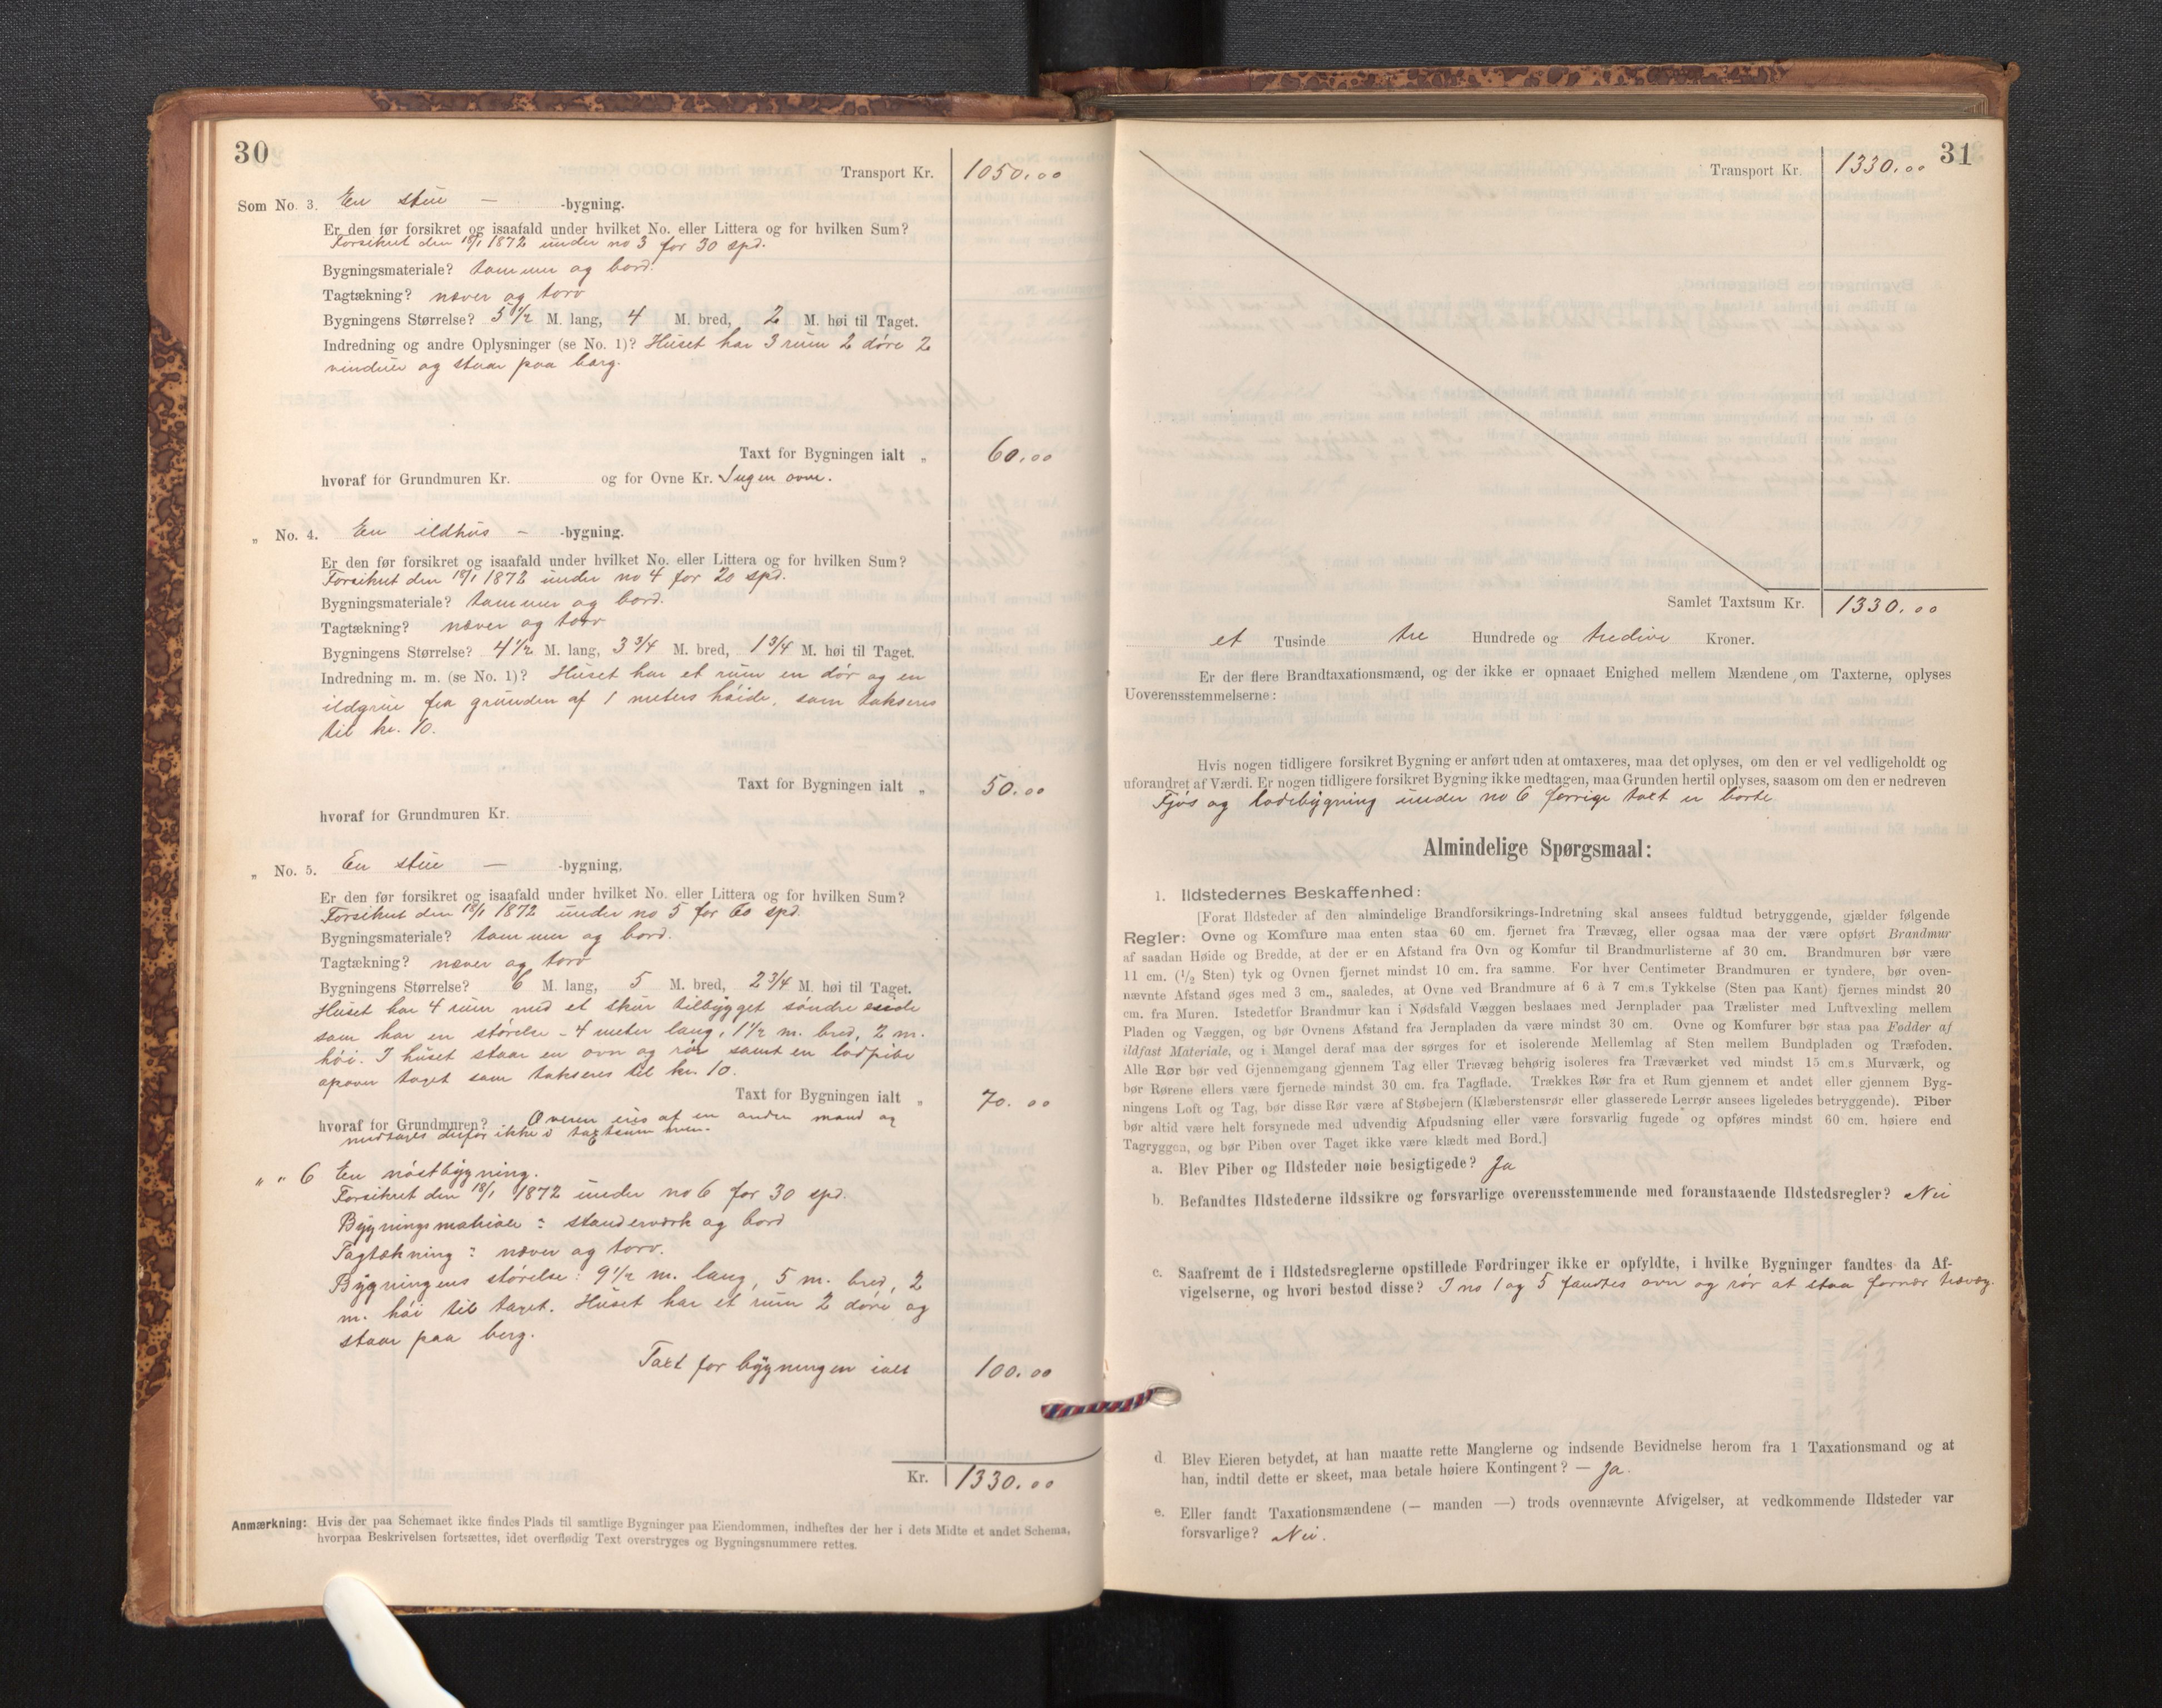 30
Transport Kr. 1050.00
Som No. 3. En stue — -bygning.
Er den før forsikret og isaafald under hvilket No. eller Littera og for hvilken Sum?
Forsikret den 18/1 1872 under no 3 for 30 spd.
Bygningsmateriale? tømmer og bord.
Tagtækning? næver og torv
Bygningens Størrelse? 5 1/2 M. lang, 4 M. bred, 2 M. høi til Taget.
Indredning og andre Oplysninger (se No. 1)? Huset har 3 rum 2 døre 2
vinduer og staar paa berg.
Taxt for Bygningen ialt „ 60.00
hvoraf for Grundmuren Kr. og for Ovne Kr. Ingen ovne.
„ No. 4. En ildhus — -bygning.
Er den før forsikret og isaafald under hvilket No. eller Littera og for hvilken Sum?
Forsikret den 18/1 1872 under no 4 for 20 spd.
Bygningsmateriale? tømmer og bord.
Tagtækning? næver og torv
Bygningens Størrelse? 4 1/2 M. lang, 3 3/4 M. bred, 1 3/4 M. høi til Taget.
Indredning m. m. (se No. 1)? Huset har et rum en dør og en
ildgrue fra grunden af 1 meters høide, som takseres
til kr. 10.
Taxt for Bygningen ialt „ 50.00
hvoraf for Grundmuren Kr.
„ No. 5. En stue — -bygning,
Er den før forsikret og isaafald under hvilket No. eller Littera og for hvilken Sum?
Forsikret den 18/1 1872 under no 5 for 60 spd.
Bygningsmateriale? tømmer og bord.
Tagtækning? næver og torv
Bygningens Størrelse? 6 M. lang, 5 M. bred, 2 3/4 M. høi til Taget.
Huset har 4 rum med et skur tilbygget søndre side
som har en størelse - 4 meter lang, 1 1/2 m. bred, 2 m.
høi. I huset staar en ovn og rør samt en lodpibe
opover taget som takseres til kr. 10.
Taxt for Bygningen ialt „ 70.00
hvoraf for Grundmuren? Ovnen eies af en anden mand og
medtages derfor ikke i taxtsummen.
„ „ 6 En nøstbygning.
Forsikret den 18/1 1872 under no 6 for 30 spd.
Bygningsmateriale: standerværk og bord
Tagtækning: næver og torv.
Bygningens størelse: 9 1/2 m. lang, 5 m. bred, 2
m. høi til taget. Huset har et rum 2 døre og
staar paa berg.
Taxt for bygningen ialt 100.00
Kr. 1330.00
Anmærkning: Hvis der paa Schemaet ikke findes Plads til samtlige Bygninger paa Eiendommen, indheftes der her i dets Midte et andet Schema,
hvorpaa Beskrivelsen fortsættes, idet overflødig Text overstryges og Bygningsnummere rettes.
31
Transport Kr. 1330.00
Samlet Taxtsum Kr. 1330.00
et Tusinde tre Hundrede og tredive Kroner.
Er der flere Brandtaxationsmænd, og der ikke er opnaaet Enighed mellem Mændene om Taxterne, oplyses
Uoverensstemmelserne:
Hvis nogen tidligere forsikret Bygning er anført uden at omtaxeres, maa det oplyses, om den er vel vedligeholdt og
uforandret af Værdi. Er nogen tidligere forsikret Bygning ikke medtagen, maa Grunden hertil oplyses, saasom om den er nedreven
Fjøs og ladebygning under no 6 forrige taxt er borte
Almindelige Spørgsmaal:
1. Ildstedernes Beskaffenhed:
[Forat Ildsteder af den almindelige Brandforsikrings-Indretning skal ansees fuldtud betryggende, gjælder følgende
Regler: Ovne og Komfure maa enten staa 60 cm. fjernet fra Trævæg, eller ogsaa maa der være opført Brandmur
af saadan Høide og Bredde, at der er en Afstand fra Ovn og Komfur til Brandmurlisterne af 30 cm. Brandmuren bør være
11 cm. (1/2 Sten) tyk og Ovnen fjernet mindst 10 cm. fra samme. For hver Centimeter Brandmuren er tyndere, bør oven-
nævnte Afstand øges med 3 cm., saaledes, at Ovne ved Brandmure af 6 à 7 cm.s Tykkelse (Sten paa Kant) fjernes mindst 20
cm. fra Muren. Istedetfor Brandmur kan i Nødsfald Væggen beslaaes med Jernplader paa Trælister med Luftvexling mellem
Pladen og Væggen, og bør Ovnens Afstand fra Jernpladen da være mindst 30 cm. Ovne og Komfurer bør staa paa Fødder af
ildfast Materiale, og i Mangel deraf maa der sørges for et isolerende Mellemlag af Sten mellem Bundpladen og Træfoden.
Alle Rør bør ved Gjennemgang gjennem Tag eller Trævæg behørig isoleres fra Træværket ved mindst 15 cm.s Murværk, og
bør Rørene ellers være fjernede mindst 30 cm. fra Tagflade. Trækkes Rør fra et Rum gjennem et andet eller gjennem Byg-
ningens Loft og Tag, bør disse Rør være af Støbejern (Klæberstensrør eller glasserede Lerrør ansees ligeledes betryggende). Piber
bør altid være helt forsynede med udvendig Afpudsning eller være forsvarlig fugede og opføres mindst 60 cm. høiere end
Tagryggen, og bør Piben over Taget ikke være klædt med Bord.]
a. Blev Piber og Ildsteder nøie besigtigede? Ja
b. Befandtes Ildstederne ildssikre og forsvarlige overensstemmende med foranstaaende Ildstedsregler? Nei
c. Saafremt de i Ildstedsreglerne opstillede Fordringer ikke er opfyldte, i hvilke Bygninger fandtes da Af-
vigelserne, og hvori bestod disse? I no 1 og 5 fandtes ovn og rør at staa fornær trævæg.
d. Blev Eieren betydet, at han maatte rette Manglerne og indsende Bevidnelse herom fra 1 Taxationsmand og at
han, indtil dette er skeet, maa betale høiere Kontingent? — Ja.
e. Eller fandt Taxationsmændene (— manden —) trods ovennævnte Afvigelser, at vedkommende Ildsteder var
forsvarlige? Nei.